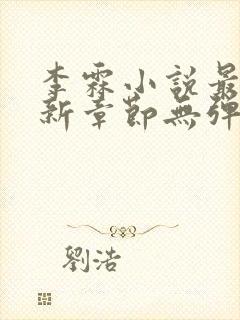 李霖小說最
新章節無彈
劉浩